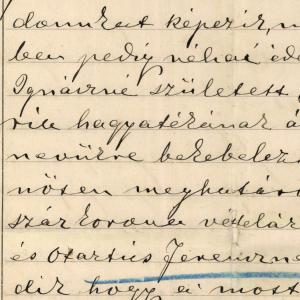 domukat képezik, 
ben pedig néhai éde
Ignáczné született
ria hagyatékának á
nevükre bekebelez
nősen meghatáro
száz korona vételár
és Osartics Ferenczné
dik hogy a most